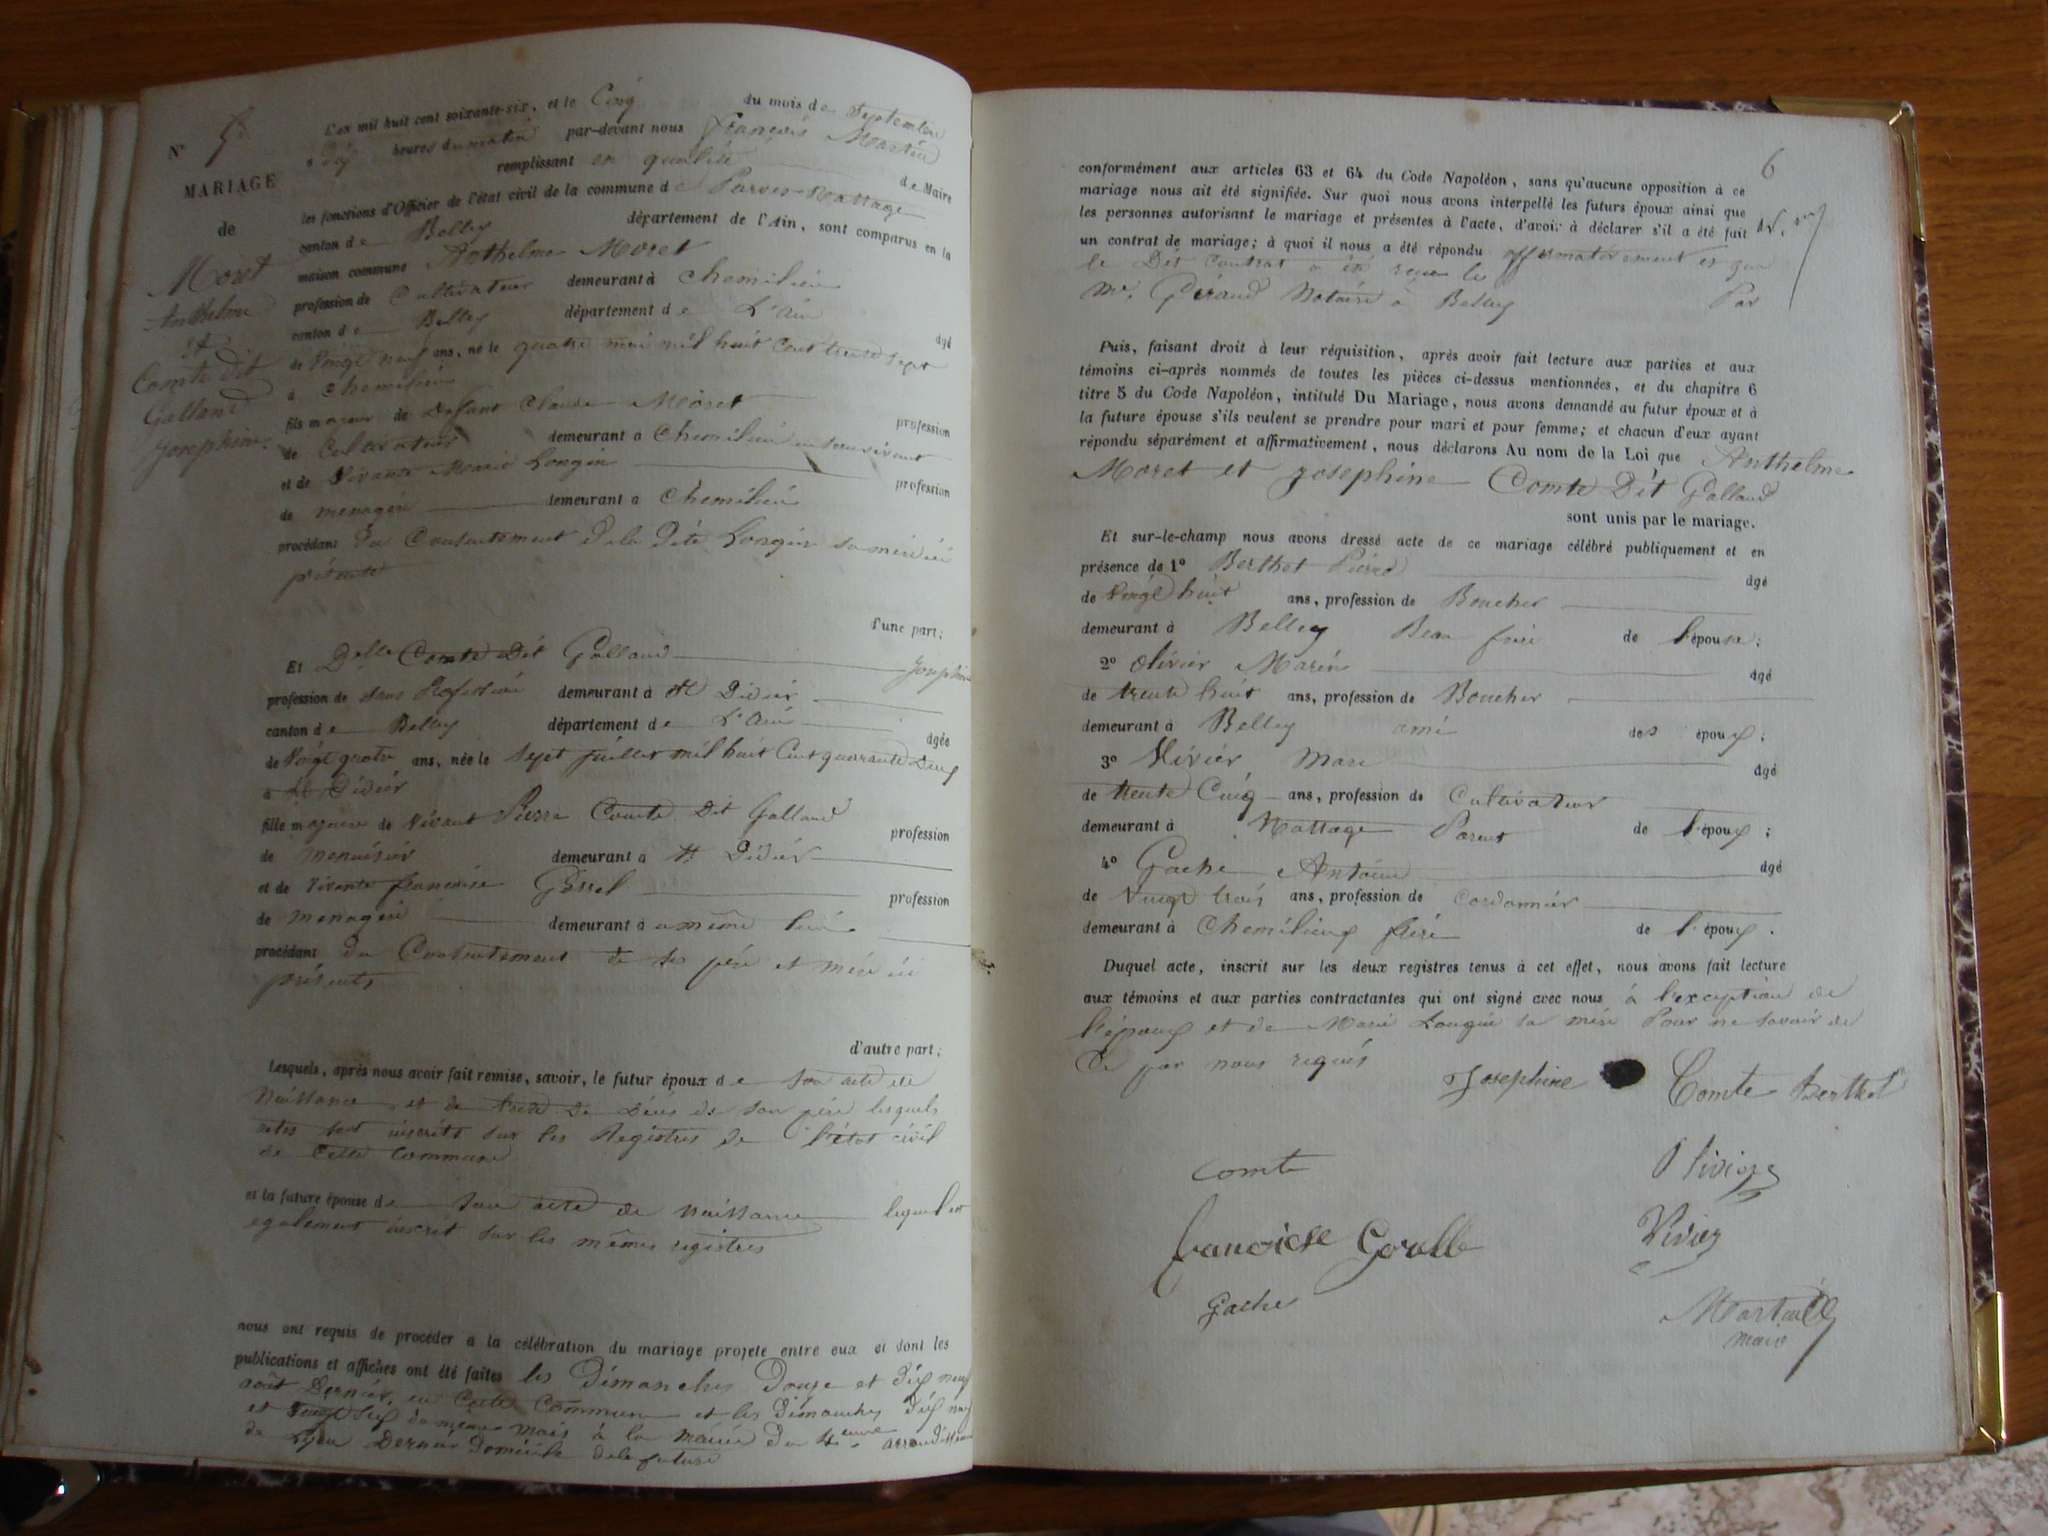 N° 5
MARIAGE
de
Moret
Anthelme
et
Comte dit
Galland
Josephine.
L'an mil huit cent soixante-six, et le Cinq du mois de Septembre
à dix heures du matin par-devant nous François Martin
remplissant en qualité de Maire
les fonctions d'Officier de l'état civil de la commune de Parves-Nattage
canton de Belley département de l'Ain, sont comparus en la
maison commune Anthelme Moret
profession de Cultivateur demeurant à Chemilieu
canton de Belley département de L'ain âgé
de Vingt neuf ans, né le quatre mai mil huit cent trente sept
à Chemilieu
fils majeur de Defunt Claude Moret profession
de Cultivateur demeurant à Chemilieu en son vivant
et de Vivante Marie Longin profession
de menagère demeurant à Chemilieu
procédant Du Consentement de la Dite Longin sa mère ici
présente
d'une part;
Et Delle Comte Dit Galland Josephine
profession de Sans Profession demeurant à St Didier
canton de Belley département de L'ain âgée
de Vingt quatre ans, née le Sept juillet mil huit Cent quarante Deux
à St Didier
fille majeure de Vivant Pierre Comte Dit Galland profession
de menuisier demeurant à St Didier
et de Vivante françoise profession
de menagère demeurant à même lieu
procédant du Consentement de ses père et mère ici
présents
d'autre part;
Lesquels, après nous avoir fait remise, savoir, le futur époux de son acte de
Naissance et de l'acte de Décès de son père lesquels
actes sont inscrits sur les Registres de l'état civil
de Cette Commune
et la future épouse de son acte de naissance lequel est
egalement inscrit sur les mêmes registres
nous ont requis de procéder à la célébration du mariage projeté entre eux et dont les
publications et affiches ont été faites les Dimanches Douze et dix neuf
août Dernier en Cette Commune et les Dimanches dix neuf
et Vingt six du même mois à la mairie du arrondissement
de Lyon Dernier Domicile de la future
6
conformément aux articles 63 et 64 du Code Napoléon, sans qu'aucune opposition à ce
mariage nous ait été signifiée. Sur quoi nous avons interpellé les futurs époux ainsi que
les personnes autorisant le mariage et présentes à l'acte, d'avoir à déclarer s'il a été fait
un contrat de mariage; à quoi il nous a été répondu affirmativement et que
le Dit Contrat a été reçu le
Me. Géraud Notaire à Belley Par
Puis, faisant droit à leur réquisition, après avoir fait lecture aux parties et aux
témoins ci-après nommés de toutes les pièces ci-dessus mentionnées, et du chapitre 6
titre 5 du Code Napoléon, intitulé Du Mariage, nous avons demandé au futur époux et à
la future épouse s'ils veulent se prendre pour mari et pour femme; et chacun d'eux ayant
répondu séparément et affirmativement, nous déclarons Au nom de la Loi que Anthelme
Moret et Josephine Comte Dit Galland
sont unis par le mariage.
Et sur-le-champ nous avons dressé acte de ce mariage célébré publiquement et en
présence de 1° Berthet Pierre âgé
de Vingt huit ans, profession de Boucher
demeurant à Belley Beau frère de l'épouse;
2° Olivier Marin âgé
de trente huit ans, profession de Boucher
demeurant à Belley ami des époux;
3° Vivier Marc âgé
de trente Cinq ans, profession de Cultivateur
demeurant à Nattage Parent de l'époux;
4° Gache Antoine âgé
de Vingt trois ans, profession de Cordonnier
demeurant à Chemilieux frère de l'époux.
Duquel acte, inscrit sur les deux registres tenus à cet effet, nous avons fait lecture
aux témoins et aux parties contractantes qui ont signé avec nous à l'exception de
l'époux et de Marie Longin sa mère Pour ne savoir de
Ce par nous requis
Josephine Comte Berthet
Comte Olivier
Vivier
Gache
Martin
maire